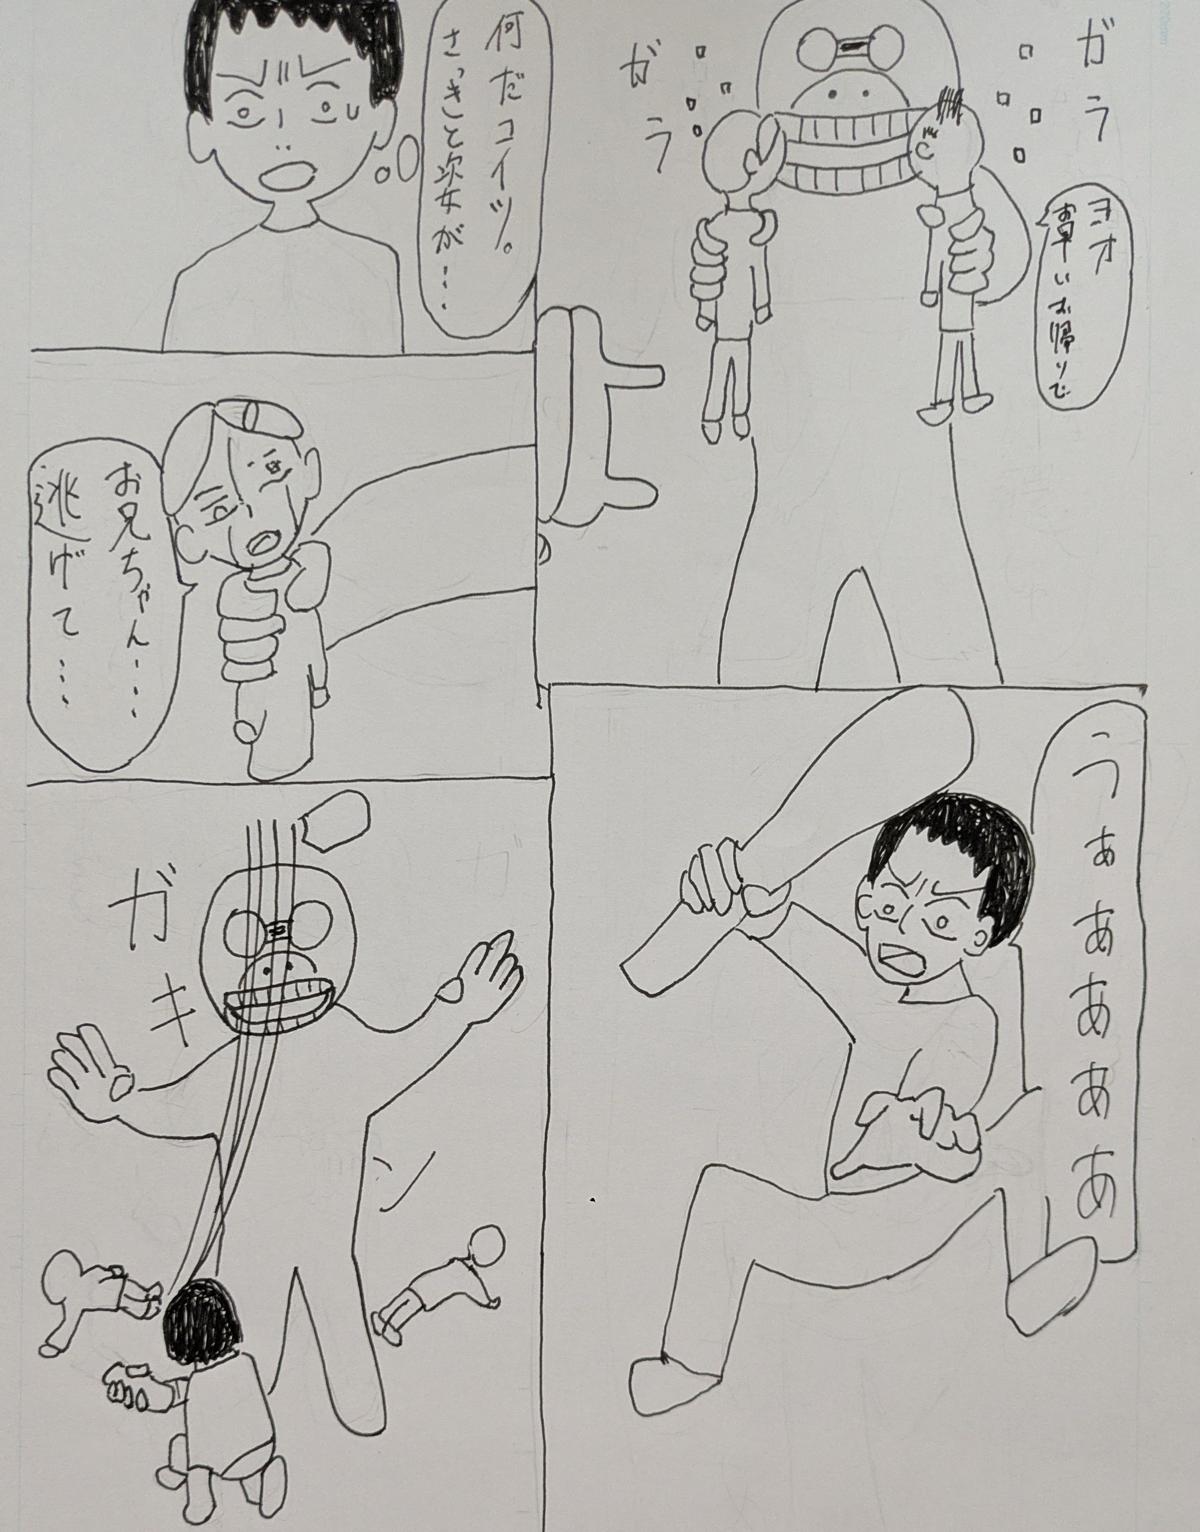 ガラ
ガラ
ヨオ
お早いお帰りで
何だコイツ。
さっきと次女が…
お兄ちゃん…
逃げて…
うぁぁあああああ
ガキ
ン